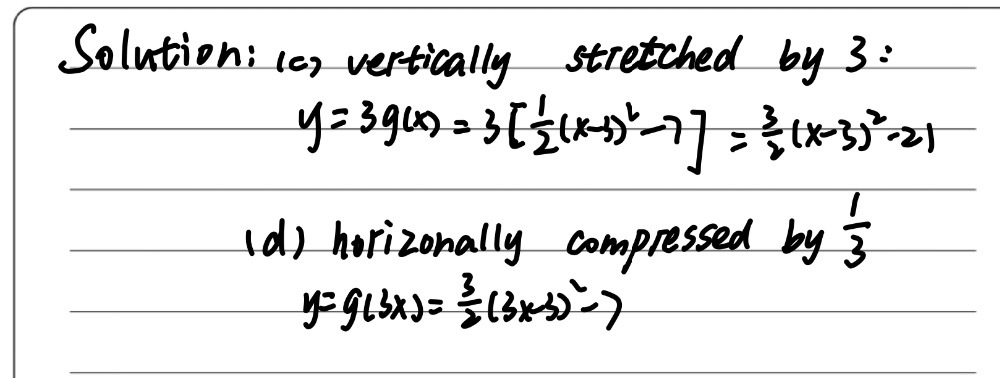 Solution: (c) vertically stretched by 3:
y = 3g(x) = 3[½(x-3)² - 7] = 3/2(x-3)² - 21
(d) horizonally compressed by 1/3
y = g(3x) = 3/2(3x-3)² - 7